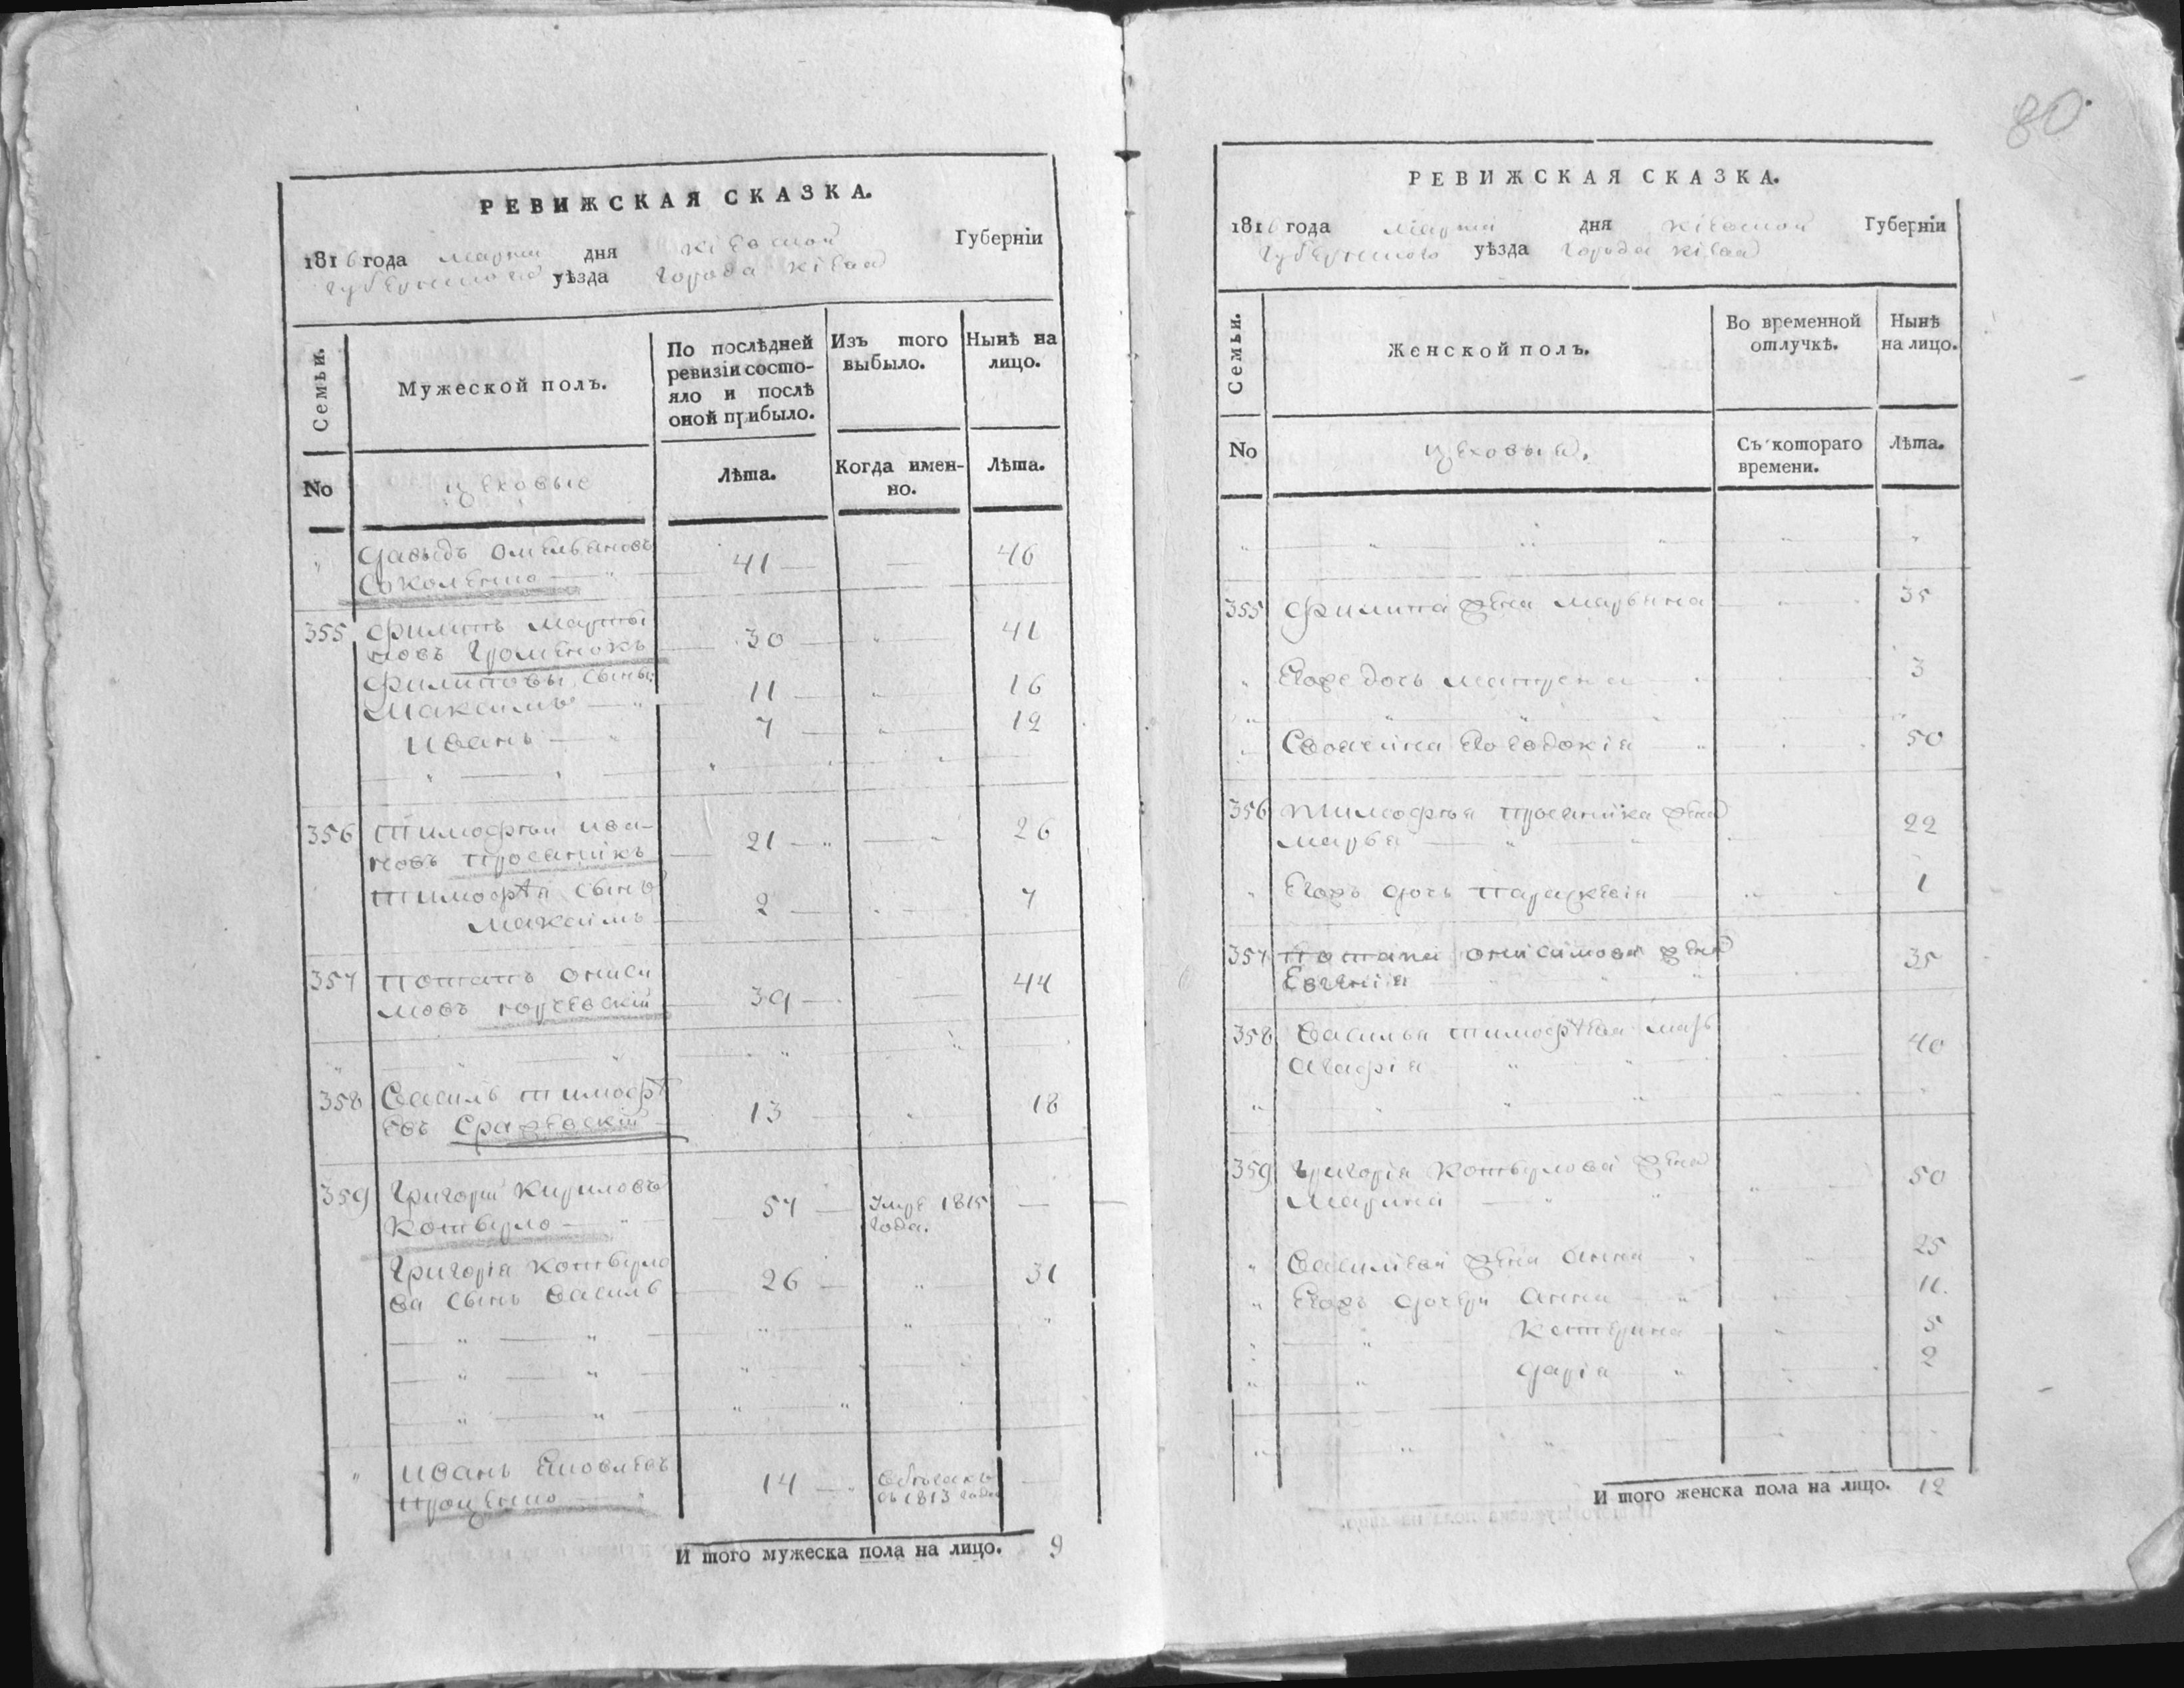 80.
РЕВИЖСКАЯ СКАЗКА.
1816 года марта дня Кіевской Губерніи
уѣзда города Кіева
Семьи.
Мужеской полъ.
По послѣдней
ревизіи состо-
яло и послѣ
оной прибыло.
Изъ того
выбыло.
Нынѣ на
лицо.
No
цеховые
Лѣта.
Когда имен-
но.
Лѣта.
Давыдъ Омельяновъ
Соколенко 41 46
355 Филипъ Марты
новъ 30 41
Филиповы сыны
Максимъ 11 16
Иванъ 7 12
356 Тимофей Ива-
новъ Просяникъ 21 26
Тимофѣя сынъ
Максимъ 2 7
357 Потапъ Ониси
мовъ 39 44
358 Василь Тимофѣ
евъ 13 18
359 Григорій Кириловъ
57 Умре 1815
года.
Григорія
ва сынъ Василь 26 31
Иванъ Яковлевъ
Проценко 14
1813 года
И того мужеска пола на лицо. 9
РЕВИЖСКАЯ СКАЗКА.
1816 года марта дня Кіевской Губерніи
уѣзда города Кіева
Семьи.
Женской полъ.
Во временной
отлучкѣ.
Нынѣ
на лицо.
No
цеховыя.
Съ котораго
времени.
Лѣта.
355 Филипа жена Марьяна 35
Его же дочь Матрена 3
Своячина Евдокія 50
356 Тимофѣя Просяника жена
Марья 22
Егожъ дочь Параскевія 1
357 Потапа Онисимова жена
Евгенія 35
358 Василья Тимофѣева мать
Агафія 40
359 Григорія жена
Марина 50
Василіева жена Анна 25
Егожъ дочери Анна 11.
Катерина 5
Дарія 2
И того женска пола на лицо. 12